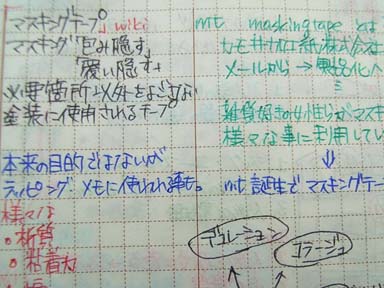 マスキングテープ wiki
マスキング「包み隠す」
「覆い隠す」
必要箇所以外をよごさない
塗装に使用されるテープ
本来の目的ではないが
ラッピング メモに使われる事も。
様々な
・材質
・粘着力
・幅
mt masking tape とは
カモ井加工紙株式会社
メールから → 製品化へ
雑貨好きの女性らがマス
様々な事に利用してい
⇓
mt 誕生で マスキングテー
デコレーション
コラージュ